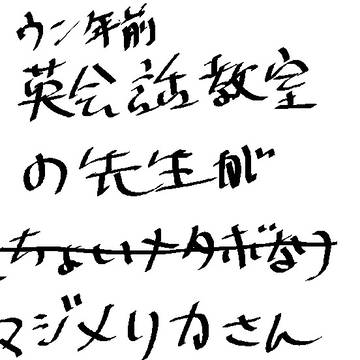 ウン年前
英会話教室
の先生が
(ちょいメタボなり
マジメリカさん